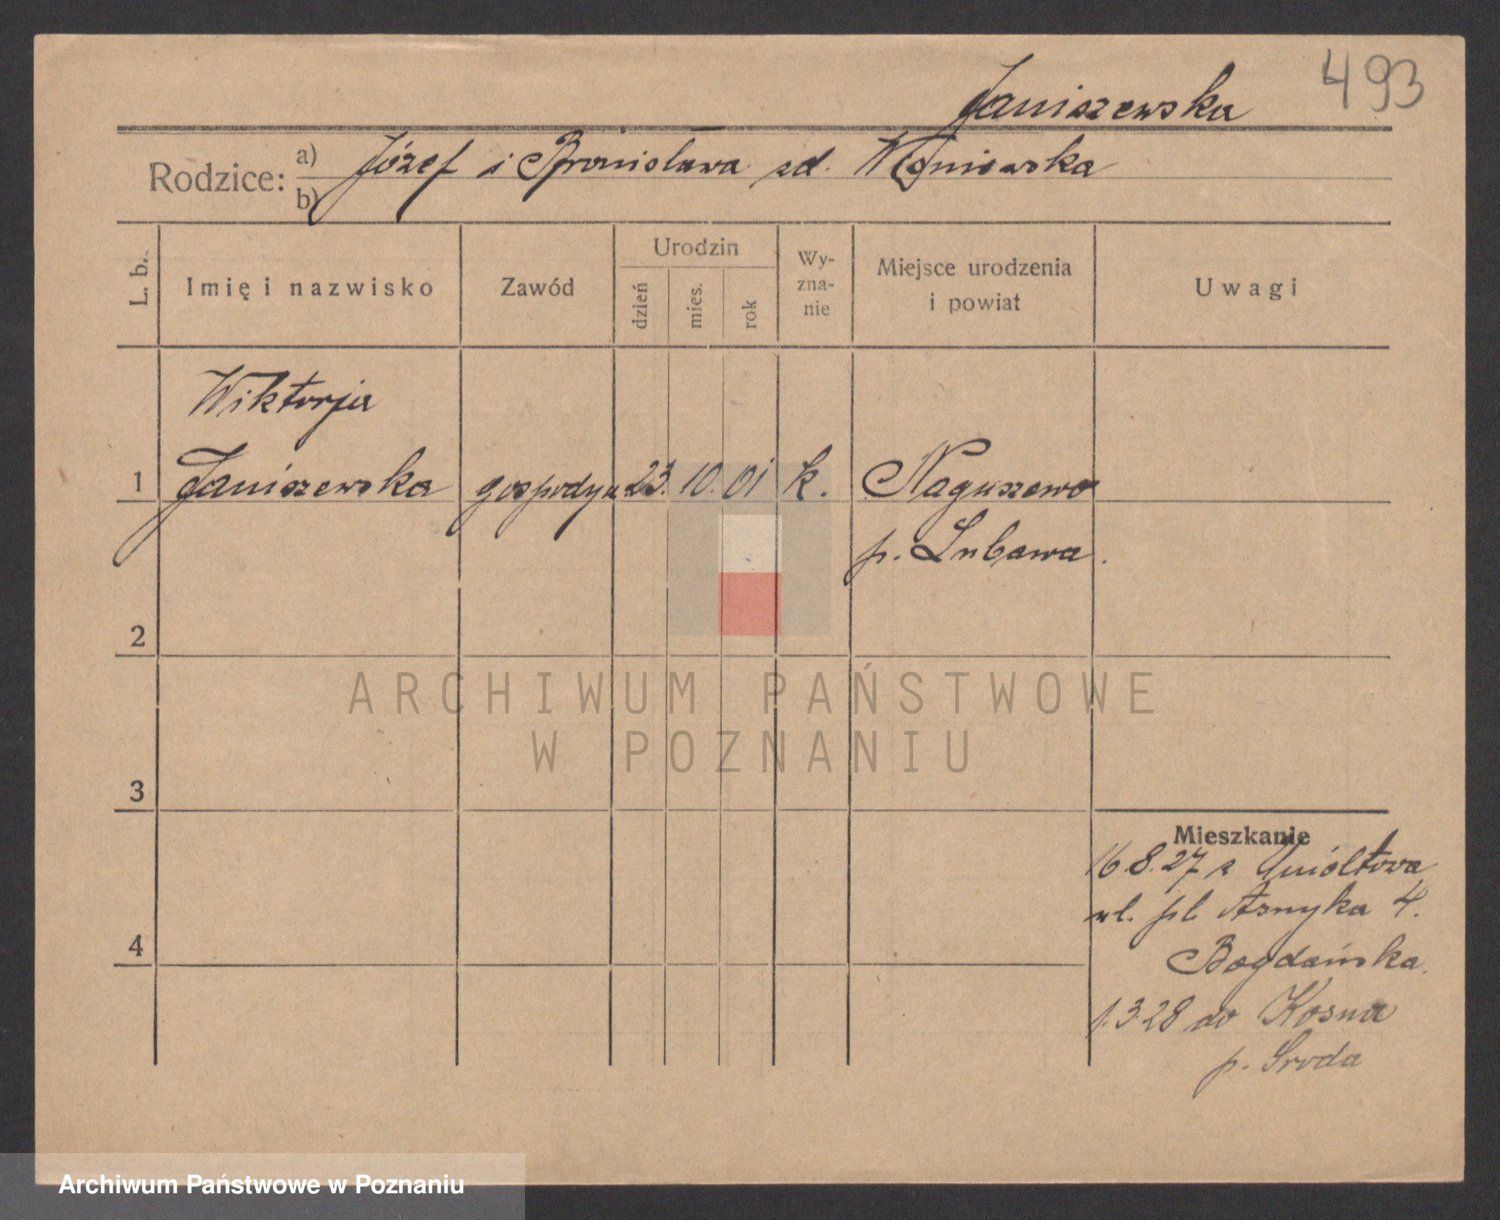 493
Janiszewska
Rodzice: a) Józef i Bronisława zd.
b)
L. b.
Imię i nazwisko
Zawód
Urodzin
dzień
mies.
rok
Wy-
zna-
nie
Miejsce urodzenia
i powiat
Uwagi
Wiktorja
1 Janiszewska gospodyni 23. 10. 01 k. Naguszewo
p. Lubawa.
2
ARCHIWUM PAŃSTWOWE
W POZNANIU
3
Mieszkanie
16.8.27 z
ul. pl. Asnyka 4.
4
Bogdańska.
1.3.28 do
p. Sroda
Archiwum Państwowe w Poznaniu